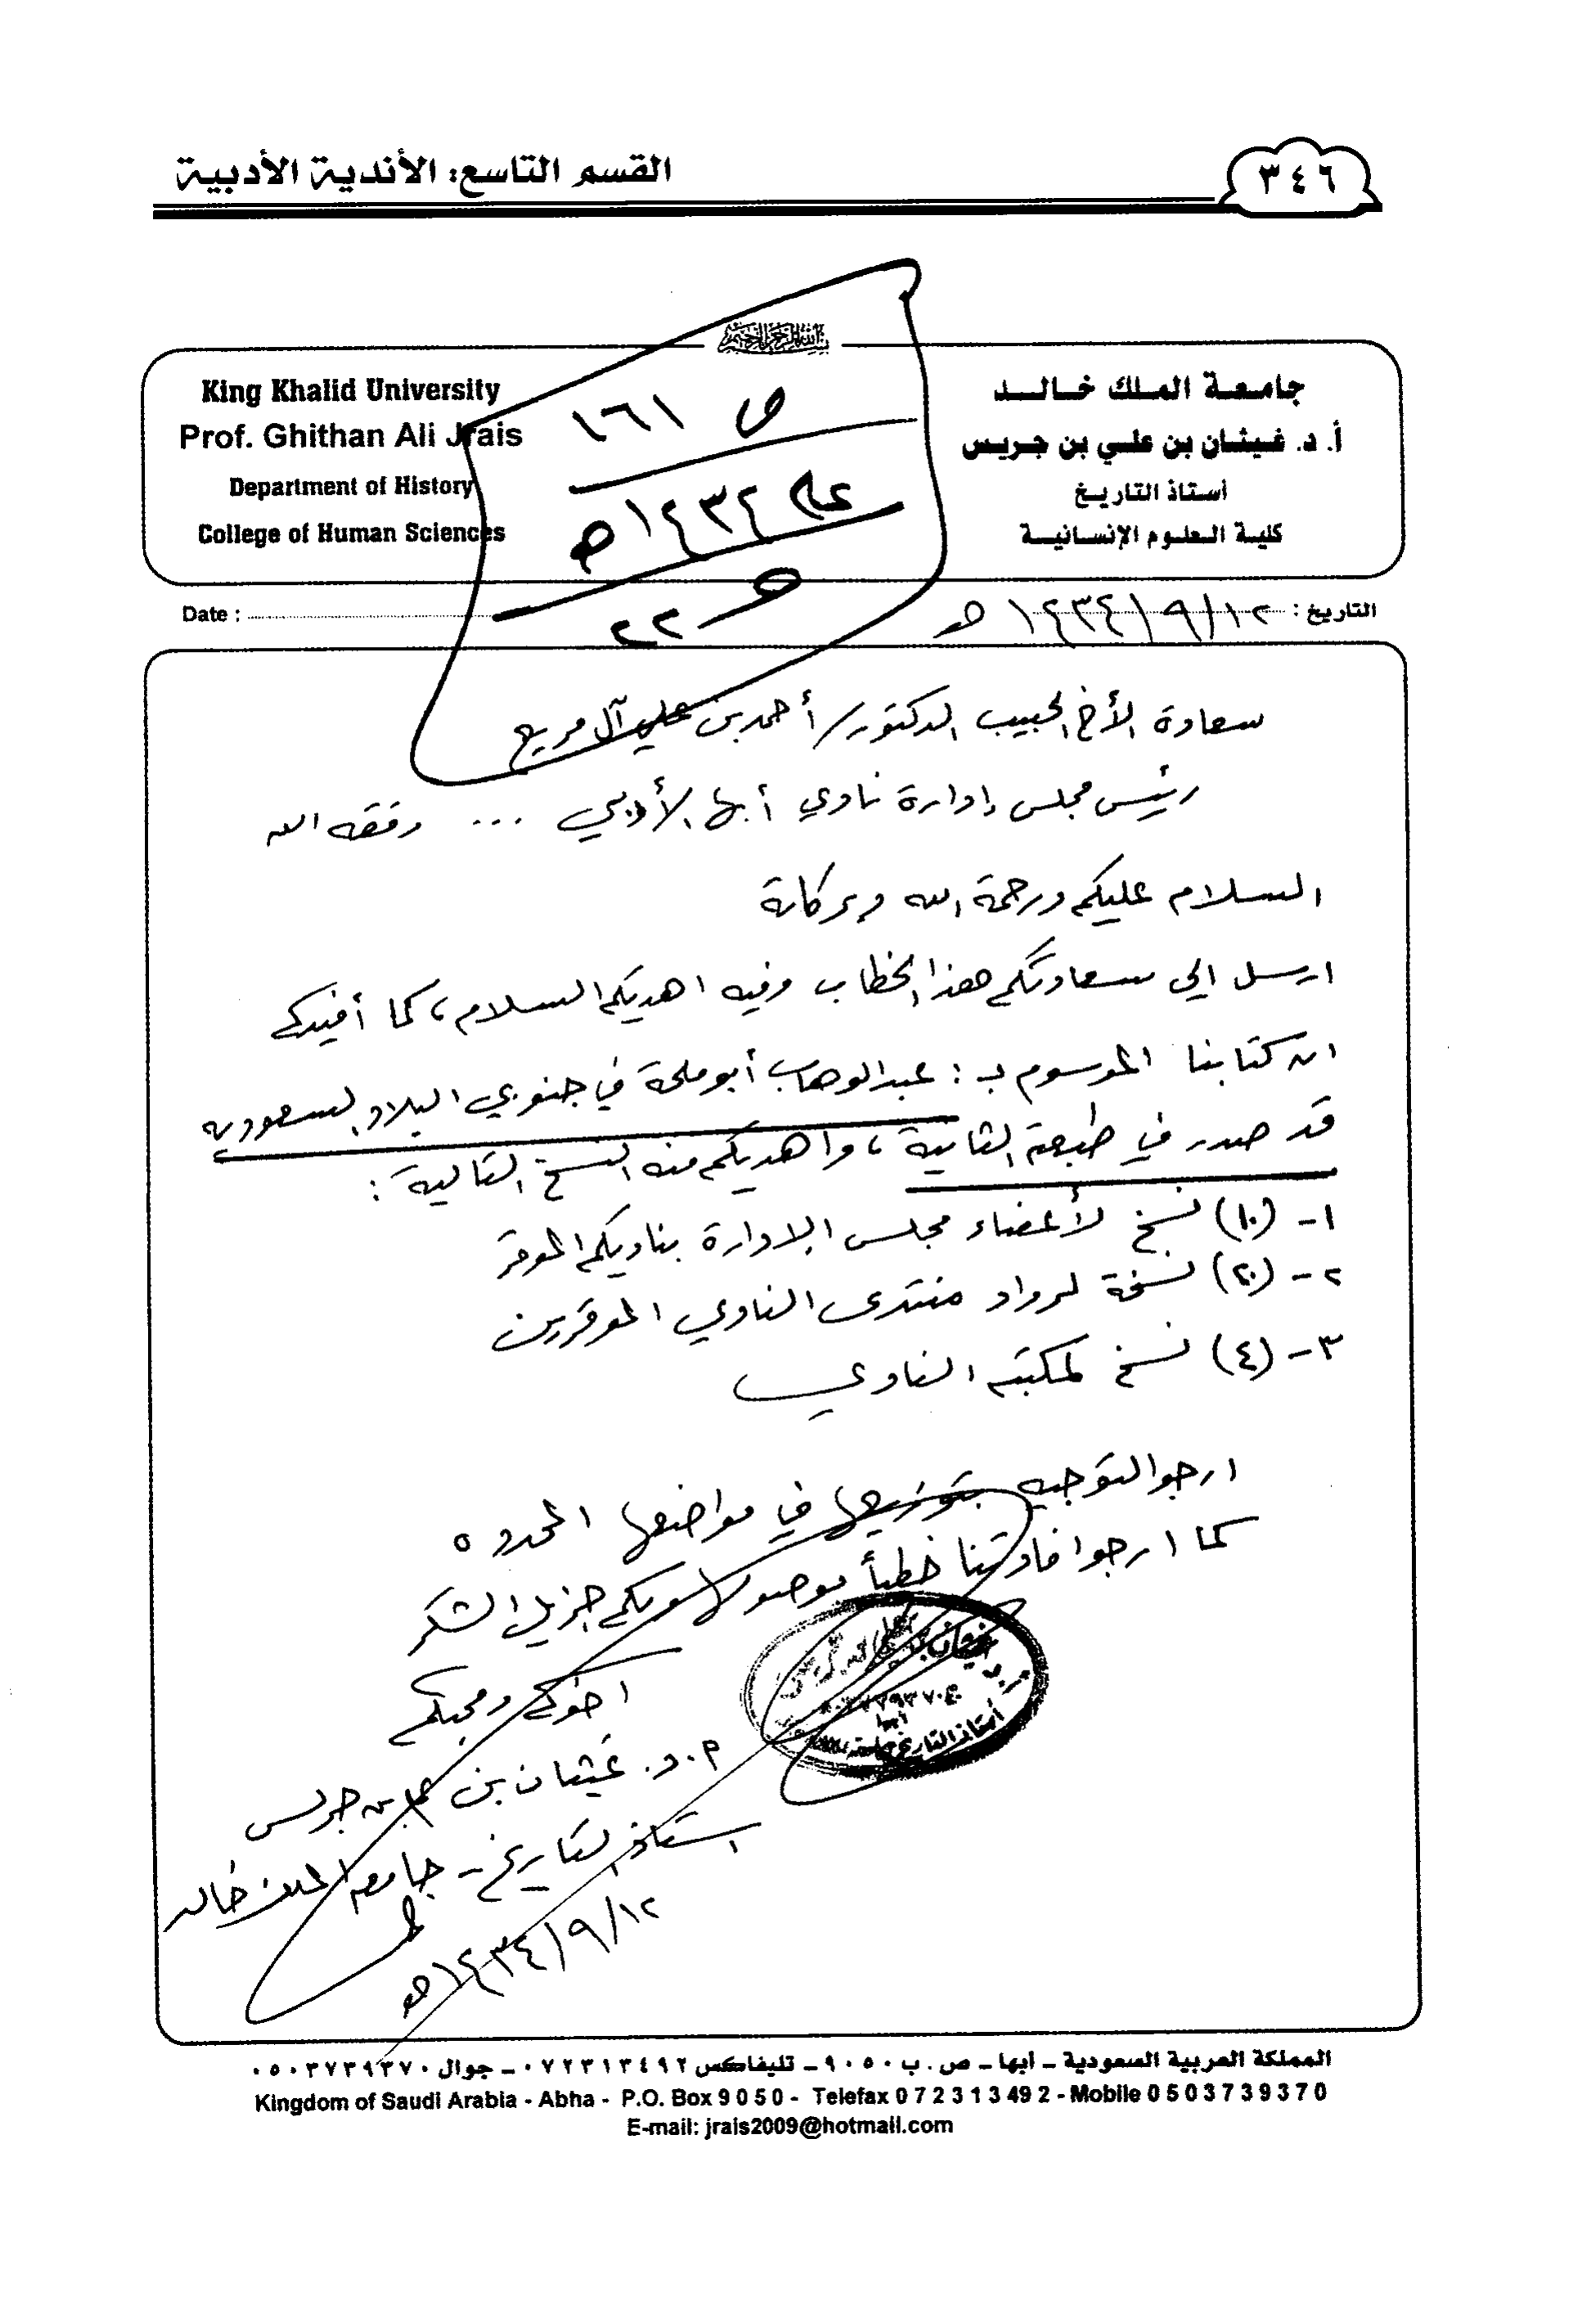 ٣٤٦
القسم التاسع: الأندية الأدبية
بسم الله الرحمن الرحيم
جامعة الملك خالد
أ. د. غيثان بن علي بن جريس
أستاذ التاريخ
كلية العلوم الإنسانية
King Khalid University
Prof. Ghithan Ali Jrais
Department of History
College of Human Sciences
ص ١٦١
عام ١٤٣٤هـ
٢٢
التاريخ : ١٢/٩/١٤٣٤هـ
Date :
سعادة الأخ الحبيب الدكتور/ أحمد بن علي آل مريع
رئيس مجلس إدارة نادي أبها الأدبي ... وفقه الله
السلام عليكم ورحمة الله وبركاتة
ارسل الي سعادتكم هذا الخطاب وفيه اهديكم السلام، كما أفيدكم
ان كتابنا الموسوم بـ : عبدالوهاب أبوملحة في جنوبي البلاد السعودية
قد صدر في طبعة الثانية، واهديكم منه النسخ التالية :
١- (١٠) نسخ لأعضاء مجلس الإدارة بناديكم الموقر
٢- (٢٠) نسخة لرواد منتدى النادي الموقرين
٣- (٤) نسخ لمكتبه النادي
ارجوا التوجيه بتوزيعها في مواضعها المحدده
كما ارجوا فادتنا خطياً بوصولها ولكم جزيل الشكر
اخوكم ومحبكم
أ. د. غيثان بن علي بن جريس
استاذ التاريخ - جامعه الملك خالد
١٢/٩/١٤٣٤هـ
المملكة العربية السعودية - أبها - ص . ب ٩٠٥٠ - تليفاكس ٠٧٢٣١٣٤٩٢ - جوال ٠٥٠٣٧٣٩٣٧٠
Kingdom of Saudi Arabia - Abha - P.O. Box 9 0 5 0 - Telefax 0 7 2 3 1 3 49 2 - Mobile 0 5 0 3 7 3 9 3 7 0
E-mail: jrais2009@hotmail.com